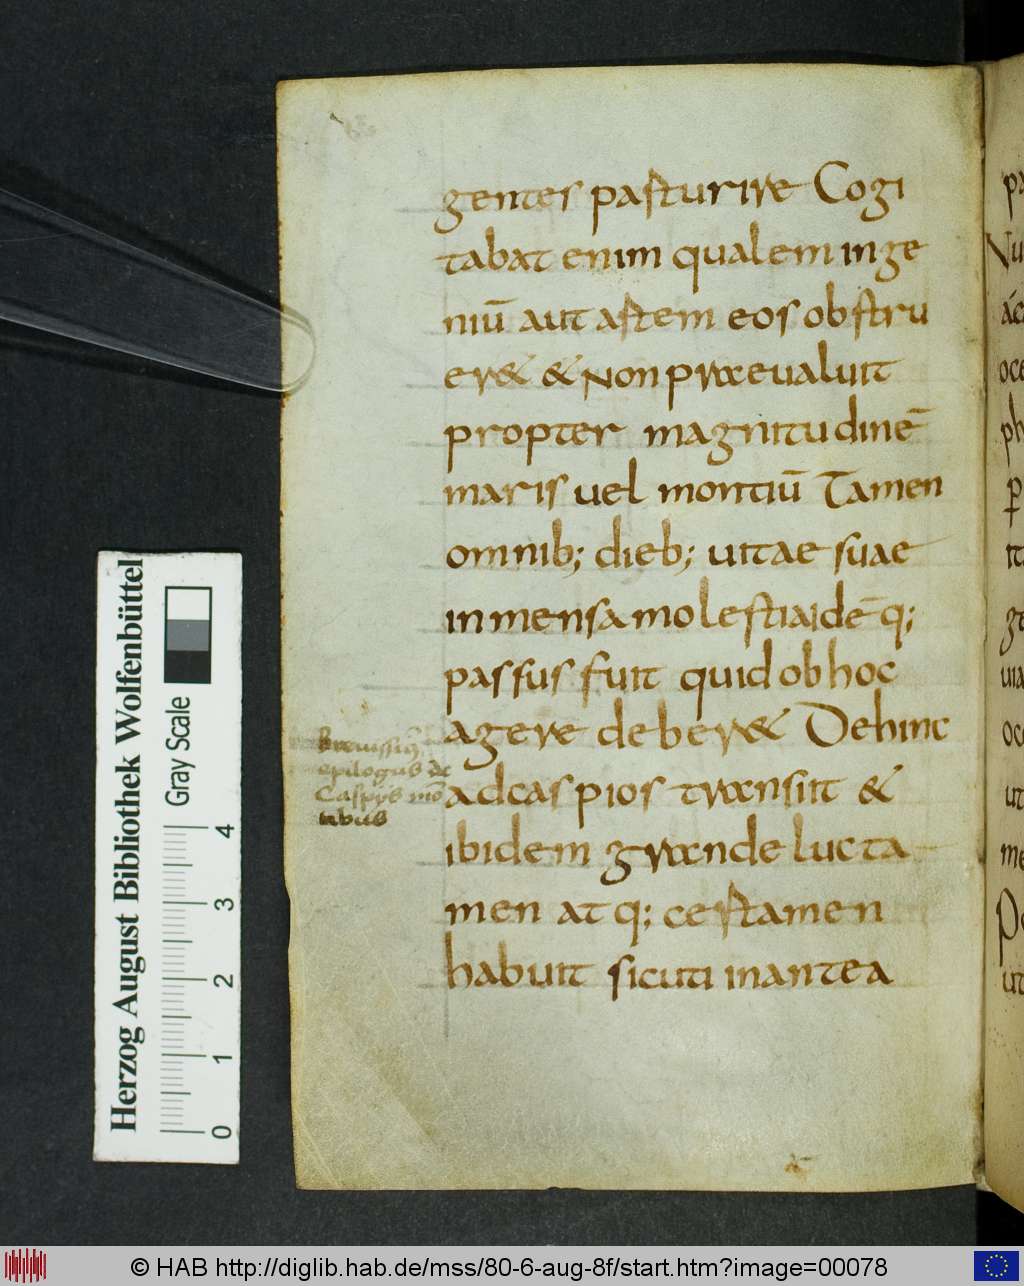 gentes pasturire Cogi
tabat enim qualem inge
niū aut astem eos obstru
er& & Non praevaluit
propter magnitudinē
maris vel montiū Tamen
omnib; dieb; vitae suae
inmensa molestia idēq;
passus fuit quid ob hoc
agere deber& Dehinc
ad caspios transiit &
ibidem grande lucta
men atq; certamen
habuit sicuti in antea
epilogus de
Caspijs mō
tibus
Herzog August Bibliothek Wolfenbüttel
Gray Scale
0 1 2 3 4
© HAB http://diglib.hab.de/mss/80-6-aug-8f/start.htm?image=00078